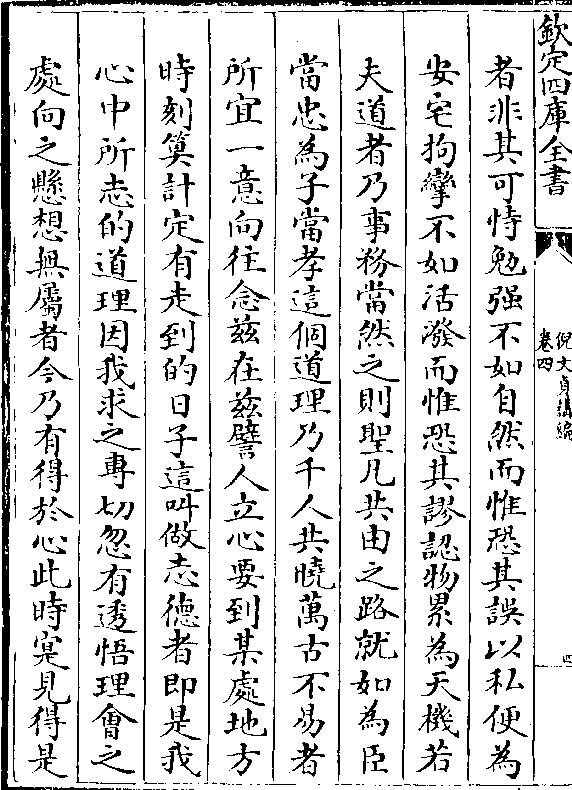 欽定四庫全書
倪文貞講編
卷四
四
者非其可恃勉强不如自然而惟恐其誤以私便為
安宅拘攣不如活潑而惟恐其謬認物累為天機若
夫道者乃事務當然之則聖凡共由之路就如為臣
當忠為子當孝這個道理乃千人共曉萬古不易者
所宜一意向往念兹在兹譬人立心要到某處地方
時刻筭計定有走到的日子這叫做志德者即是我
心中所志的道理因我求之專切忽有透悟理會之
處向之懸想無屬者今乃有得於心此時寔見得是